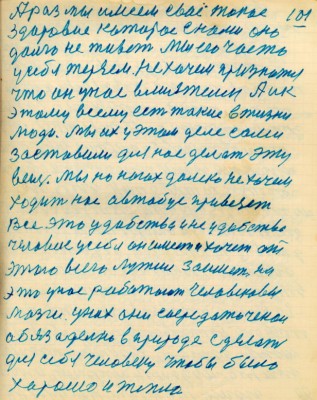 101
А раз мы имеем своё такое
здоровие которое с нами оно
долго не живет мы его часто
у себя теряем. Не хочем признатся
что он у нас влияяием А к
этому всему есть такие в жизни
люди. мы их у этом деле сами
заставили для нас делат эту
вещ. мы по ногах далеко не хочем
ходит нас автобус привезет
Все это удобства и не удобства
человек у себя он имет и хочет от
этого всего лучше зажит, на
это у нас работают человековы
мозги. у них они сосредоточеной
обязателно в природе сделат
для себя человеку чтобы было
хорошо и тепло